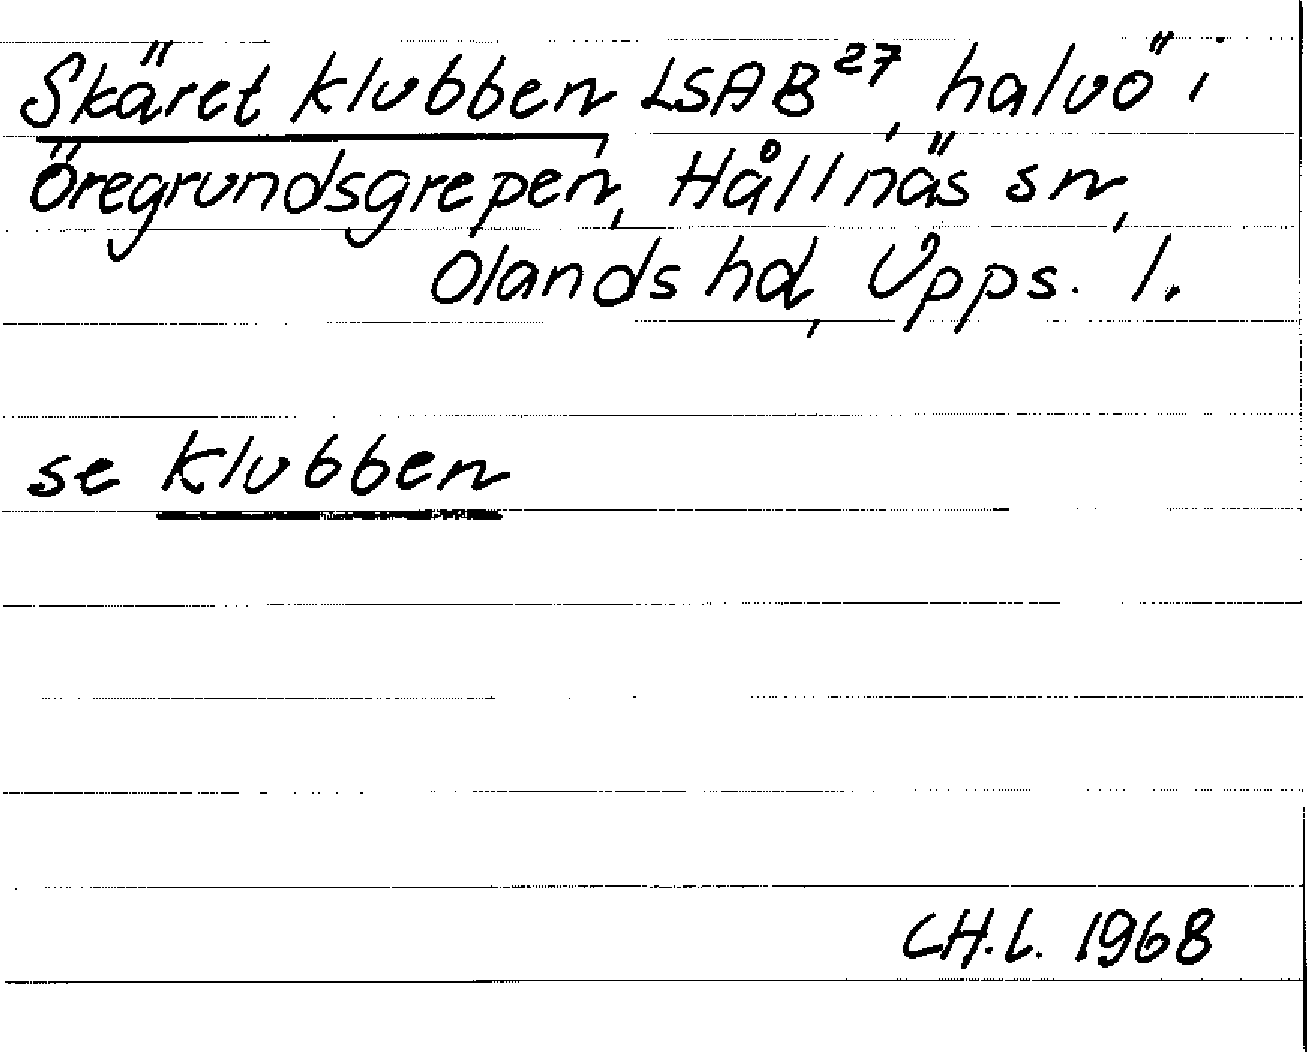 Skäret klubben LSA B 27, halvö i
Öregrundsgrepen, Hållnäs sn,
Olands hd, Upps. l.
se klubben
CH.L. 1968